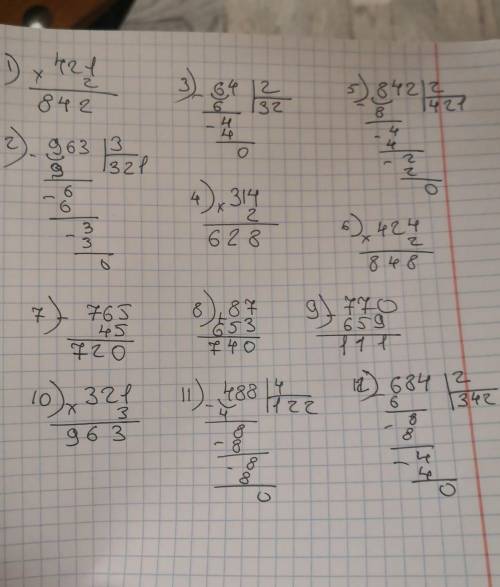 1) × 421
2
842
2) - 963 | 3
9 | 321
- 6
6
- 3
3
0
3) - 64 | 2
6 | 32
- 4
4
0
4) × 314
2
628
5) - 842 | 2
8 | 421
- 4
4
- 2
2
0
6) × 424
2
848
7) - 765
45
720
8) + 87
653
740
9) - 770
659
111
10) × 321
3
963
11) - 488 | 4
4 | 122
- 8
8
- 8
8
0
12) - 684 | 2
6 | 342
- 8
8
- 4
4
0